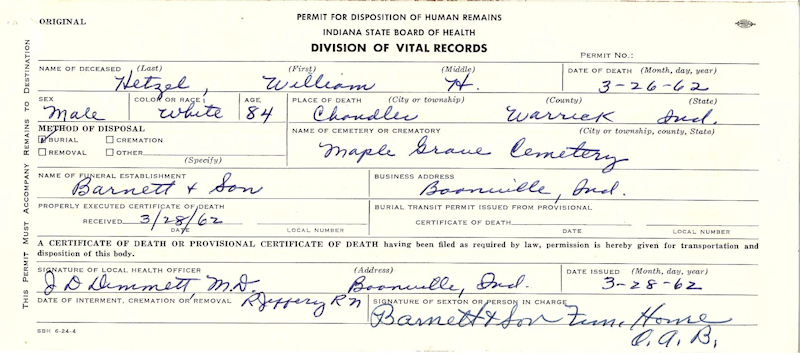 ORIGINAL
PERMIT FOR DISPOSITION OF HUMAN REMAINS
INDIANA STATE BOARD OF HEALTH
DIVISION OF VITAL RECORDS
PERMIT NO.:
THIS PERMIT MUST ACCOMPANY REMAINS TO DESTINATION
NAME OF DECEASED (Last) (First) (Middle) DATE OF DEATH (Month, day, year)
Hetzel, William H. 3-26-62
SEX COLOR OR RACE AGE PLACE OF DEATH (City or township) (County) (State)
Male White 84 Chandler Warrick Ind.
METHOD OF DISPOSAL NAME OF CEMETERY OR CREMATORY (City or township, county, State)
BURIAL CREMATION
REMOVAL OTHER
Maple Grove Cemetery
(Specify)
NAME OF FUNERAL ESTABLISHMENT BUSINESS ADDRESS
Barnett & Son Boonville, Ind.
PROPERLY EXECUTED CERTIFICATE OF DEATH BURIAL TRANSIT PERMIT ISSUED FROM PROVISIONAL
RECEIVED 3/28/62 CERTIFICATE OF DEATH
DATE LOCAL NUMBER DATE LOCAL NUMBER
A CERTIFICATE OF DEATH OR PROVISIONAL CERTIFICATE OF DEATH having been filed as required by law, permission is hereby given for transportation and
disposition of this body.
SIGNATURE OF LOCAL HEALTH OFFICER (Address) DATE ISSUED (Month, day, year)
J D Dimmett, M.D. Boonville, Ind. 3-28-62
DATE OF INTERMENT, CREMATION OR REMOVAL R Jeffery RN SIGNATURE OF SEXTON OR PERSON IN CHARGE
Barnett & Son Fun. Home
O.A.B.
SBH 6-24-4